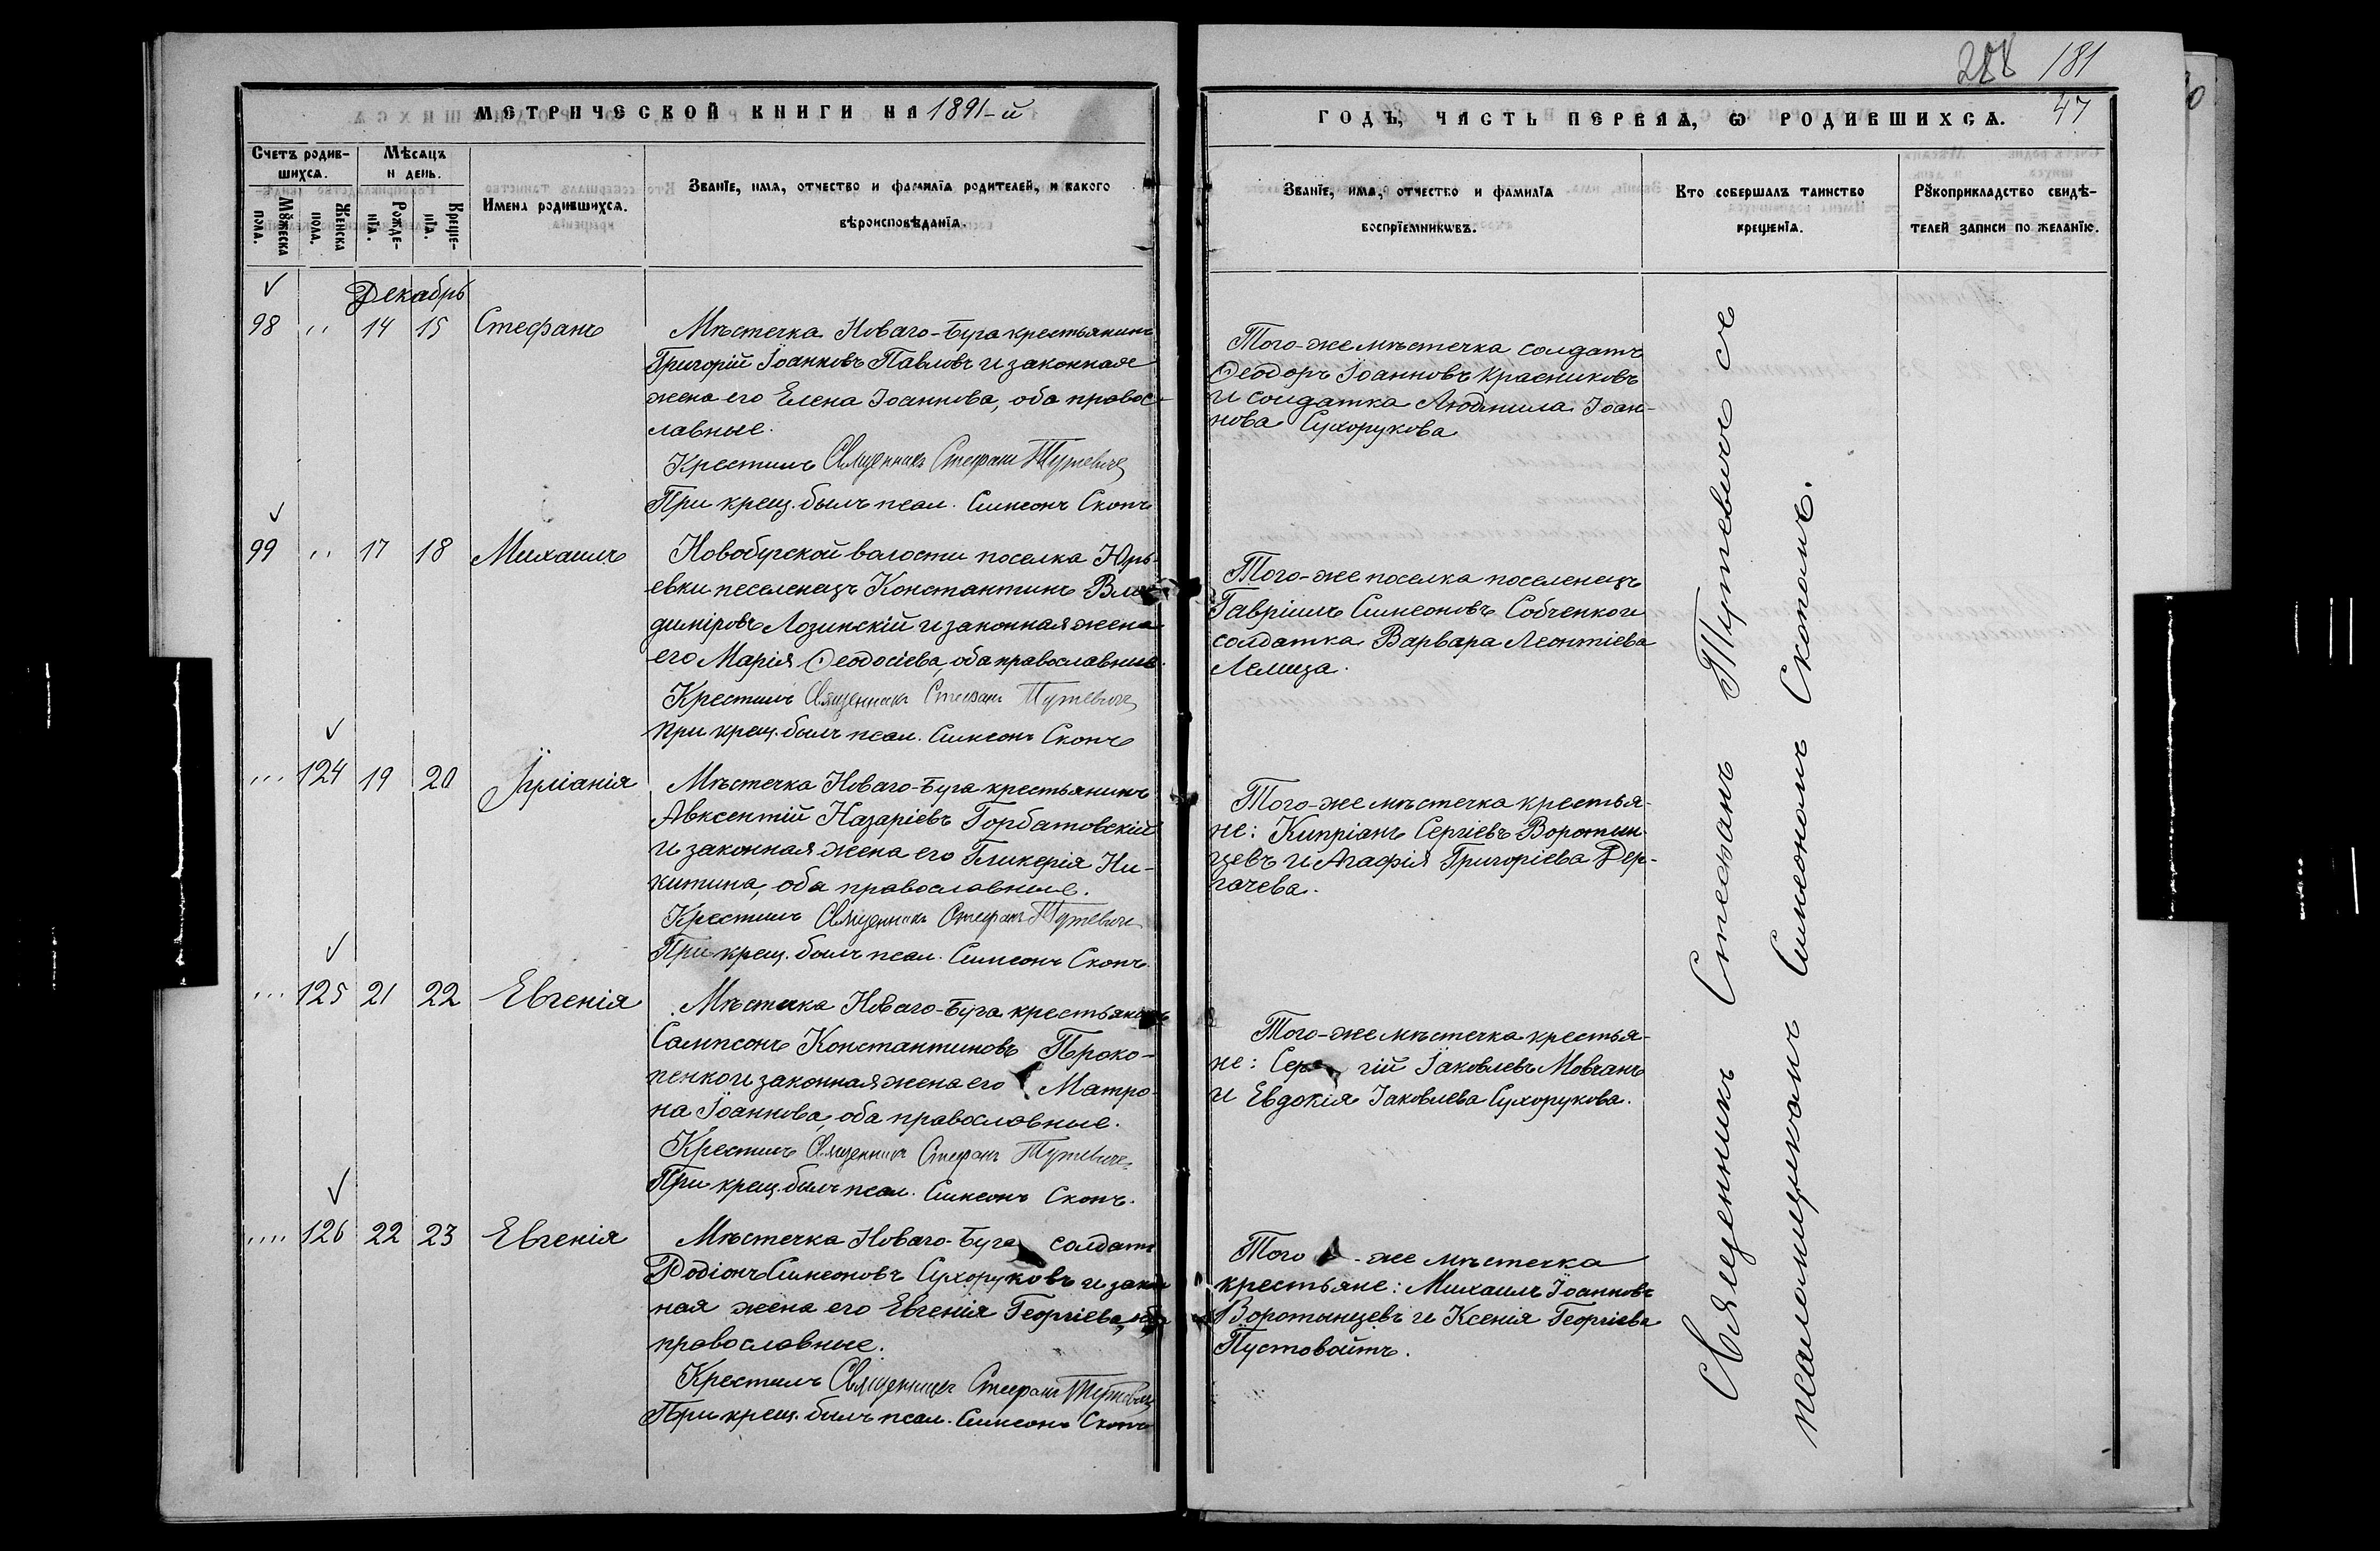 288 181
МЕТРИЧЕСКОЙ КНИГИ НА 1891-й
ГОДЪ, ЧАСТЬ ПЕРВАѦ, Ѡ РОДИВШИХСѦ. 47
Счетъ родив-
шихсѧ.
Мѣсѧцъ
и день.
Мꙋжеска
пола.
Женска
пола.
Рожде-
нїѧ.
Креще-
нїѧ.
Имена родившихсѧ.
Званїе, имѧ, отчество и фамилїѧ родителей, и какого
вѣроисповѣданїѧ.
Званїе, имѧ, отчество и фамилїѧ
воспрїемникѡвъ.
Кто совершалъ таинство
крещенїѧ.
Рꙋкоприкладство свидѣ-
телей записи по желанїю.
Декабрь
98 " 14 15 Стефанъ
Мѣстечка Новаго-Буга крестьянинъ
Григорій Іоанновъ Павловъ и законная
жена его Елена Іоаннова, оба правос-
лавные.
Крестилъ Священникъ Стефанъ Тутевичъ
При крещ. былъ псал. Симеонъ Скопъ
Того-же мѣстечка солдатъ
Ѳеодоръ Іоанновъ Красниковъ
и солдатка Людмила Іоан-
нова Сухорукова
99 " 17 18 Михаилъ
Новобугской валости поселка Юрь-
евки песеленецъ Константинъ Вла-
диміровъ Лозинскій и законная жена
его Марія Ѳеодосіева, оба православные.
Крестилъ Священникъ Стефанъ Тутевичъ
При крещ. былъ псал. Симеонъ Скопъ
Того-же поселка поселенецъ
Гавріилъ Симеоновъ Собченко и
солдатка Варвара Леонтіева
Лемеза.
124 19 20 Іуліанія
Мѣстечка Новаго-Буга крестьянинъ
Авксентій Назаріевъ Горбатовскій
и законная жена его Гликерія Ни-
китина, оба православные.
Крестилъ Священникъ Стефанъ Тутевичъ
При крещ. былъ псал. Симеонъ Скопъ.
Того-же мѣстечка крестья-
не: Кипріанъ Сергіевъ Воротын-
цевъ и Агафія Григоріева Дер-
гачева.
125 21 22 Евгенія
Мѣстечка Новаго-Буга крестьянинъ
Сампсонъ Константиновъ Проко-
пенко и законная жена его Матро-
на Іоаннова, оба православные.
Крестилъ Священникъ Стефанъ Тутевичъ
При крещ. былъ псал. Симеонъ Скопъ.
Того-же мѣстечка крестья-
не: Сергій Іаковлевъ Мовчанъ
и Евдокія Іаковлева Сухорукова.
126 22 23 Евгенія
Мѣстечка Новаго-Буга солдатъ
Родіонъ Симеоновъ Сухоруковъ и закон
ная жена его Евгенія Георгіева, оба
православные.
Крестилъ Священникъ Стефанъ Тутевичъ
При крещ. былъ псал. Симеонъ Скопъ
Того-же мѣстечка
крестьяне: Михаилъ Іоанновъ
Воротынцевъ и Ксенія Георгіева
Пустовойтъ.
Священникъ Стефанъ Тутевичъ съ
псаломщикомъ Симеономъ Скопомъ.